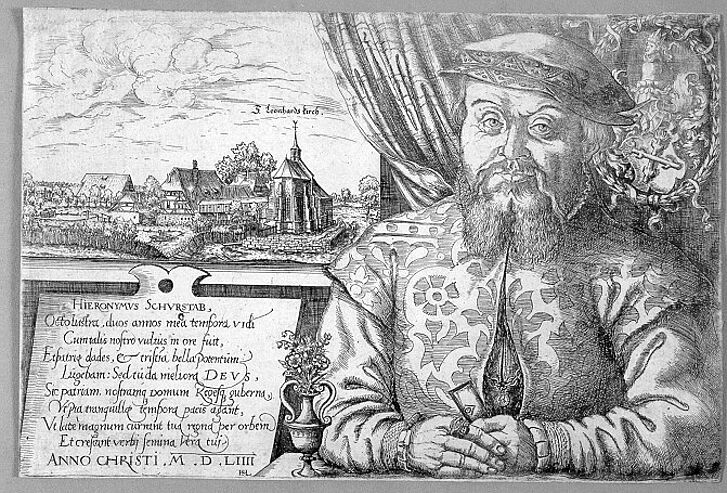 S. Leonhards kirch.
HIERONYMVS SCHVRSTAB,
Octo lustra, duos annos mea tempora vidi
Cum talis nostro vultus in ore fuit,
Et patriæ clades, & tristia bella potentum
Lugebam: Sed tu da meliora DEVS,
Sic patriam, nostramq domum Regesq guberna,
Vt pia tranquillæ tempora pacis agant,
Vt late magnum currant tua regna per orbem
Et crescant verbi semina vera tui
ANNO CHRISTI. M. D. LIIII
HL